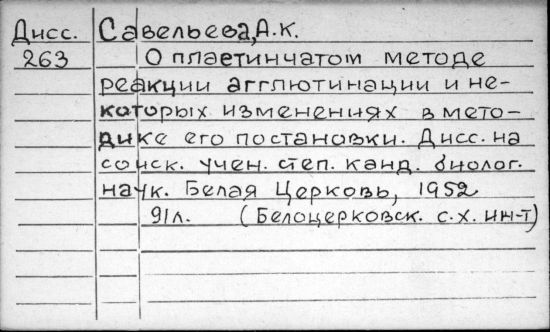 Дисс. Савельева, А.К.
263 О пластинчатом методе
реакции агглютинации и не-
которых изменениях в мето-
дике его постановки. Дисс. на
соиск. учен. степ. канд. биолог.
наук. Белая Церковь, 1952
91л. (Белоцерковск. с.х. ин-т)